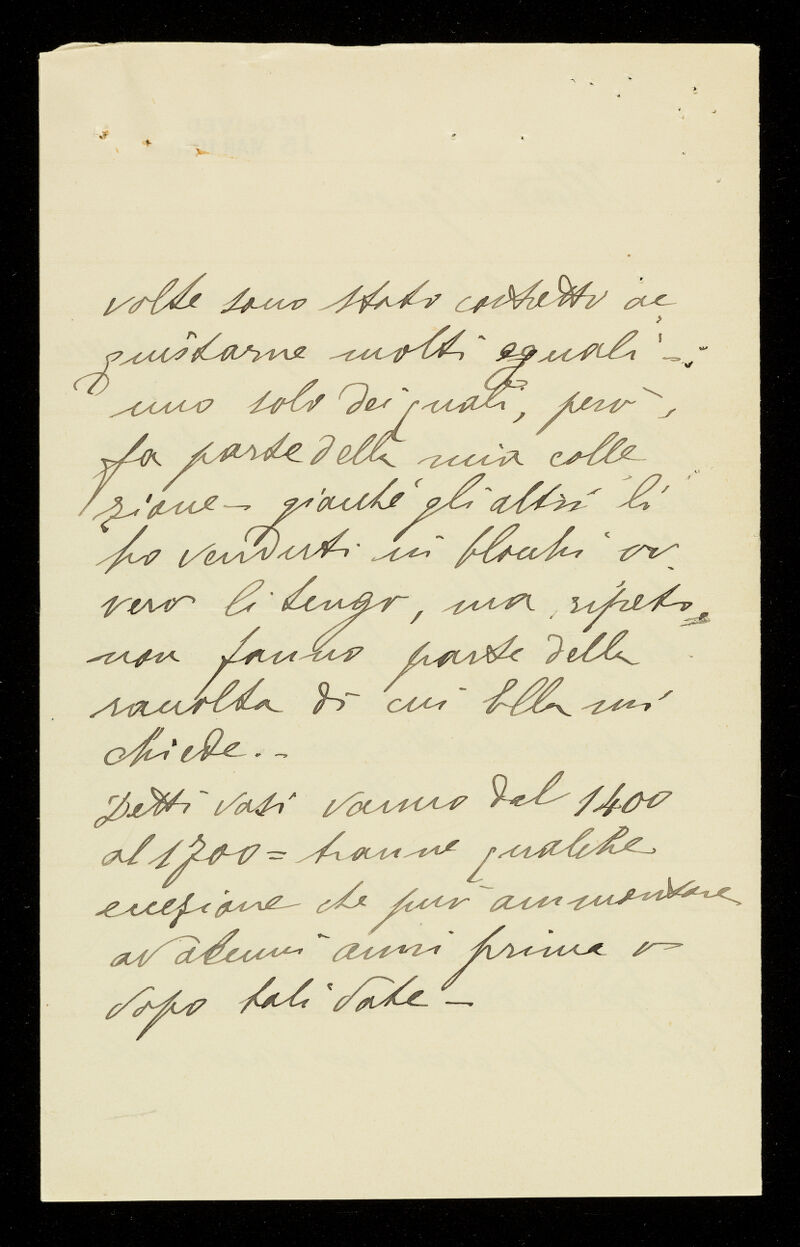 volte sono stato costretto ac
quistarne molti eguali -
uno solo dei quali, però,
fa parte della mia colle
zione - giacché gli altri li
ho venduti in blocchi ov
vero li tengo, ma, ripeto,
non fanno parte della
raccolta di cui Ella mi
chiede. -
Detti vasi vanno dal 1400
al 1700 = tranne qualche
eccezione che può ammontare
ad alcuni anni prima o
dopo tali date -